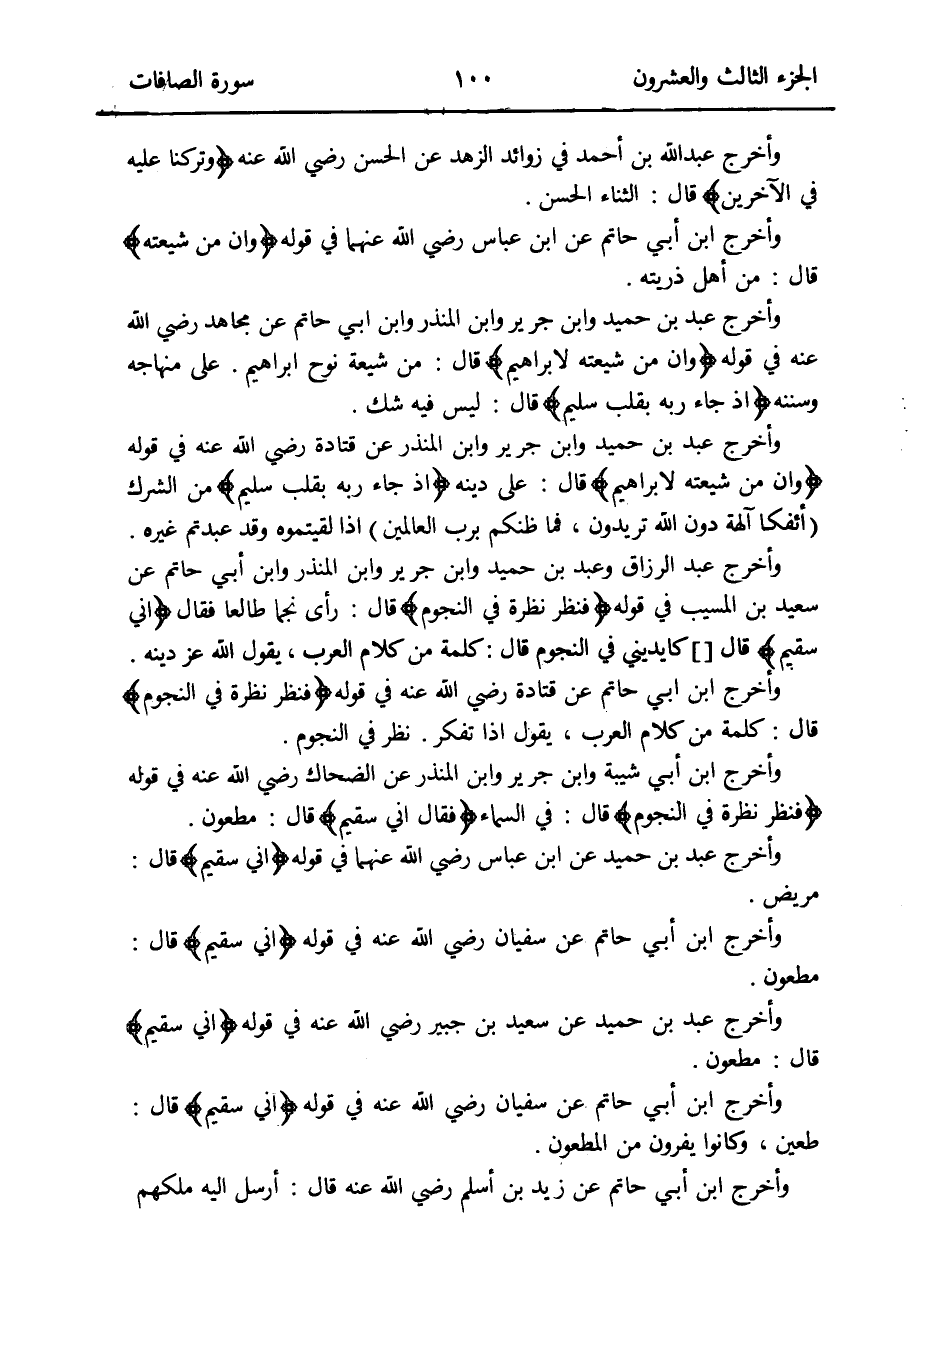 الجزء الثالث والعشرون ١٠٠ سورة الصافات
وأخرج عبدالله بن أحمد في زوائد الزهد عن الحسن رضي الله عنه ﴿وتركنا عليه
في الآخرين﴾ قال : الثناء الحسن .
وأخرج ابن أبي حاتم عن ابن عباس رضي الله عنهما في قوله ﴿وان من شيعته﴾
قال : من أهل ذريته .
وأخرج عبد بن حميد وابن جرير وابن المنذر وابن ابي حاتم عن مجاهد رضي الله
عنه في قوله ﴿وان من شيعته لابراهيم﴾ قال : من شيعة نوح ابراهيم . على منهاجه
وسننه ﴿اذ جاء ربه بقلب سليم﴾ قال : ليس فيه شك .
وأخرج عبد بن حميد وابن جرير وابن المنذر عن قتادة رضي الله عنه في قوله
﴿وان من شيعته لابراهيم﴾ قال : على دينه ﴿اذ جاء ربه بقلب سليم﴾ من الشرك
(أئفكا آلهة دون الله تريدون ، فما ظنكم برب العالمين) اذا لقيتموه وقد عبدتم غيره .
وأخرج عبد الرزاق وعبد بن حميد وابن جرير وابن المنذر وابن أبي حاتم عن
سعيد بن المسيب في قوله ﴿فنظر نظرة في النجوم﴾ قال : رأى نجما طالعا فقال ﴿اني
سقيم﴾ قال [] كايديني في النجوم قال : كلمة من كلام العرب ، يقول الله عز دينه .
وأخرج ابن ابي حاتم عن قتادة رضي الله عنه في قوله ﴿فنظر نظرة في النجوم﴾
قال : كلمة من كلام العرب ، يقول اذا تفكر . نظر في النجوم .
وأخرج ابن أبي شيبة وابن جرير وابن المنذر عن الضحاك رضي الله عنه في قوله
﴿فنظر نظرة في النجوم﴾ قال : في السماء ﴿فقال اني سقيم﴾ قال : مطعون .
وأخرج عبد بن حميد عن ابن عباس رضي الله عنهما في قوله ﴿اني سقيم﴾ قال :
مريض .
وأخرج ابن أبي حاتم عن سفيان رضي الله عنه في قوله ﴿اني سقيم﴾ قال :
مطعون .
وأخرج عبد بن حميد عن سعيد بن جبير رضي الله عنه في قوله ﴿اني سقيم﴾
قال : مطعون .
وأخرج ابن أبي حاتم عن سفيان رضي الله عنه في قوله ﴿اني سقيم﴾ قال :
طعين ، وكانوا يفرون من المطعون .
وأخرج ابن أبي حاتم عن زيد بن أسلم رضي الله عنه قال : أرسل اليه ملكهم